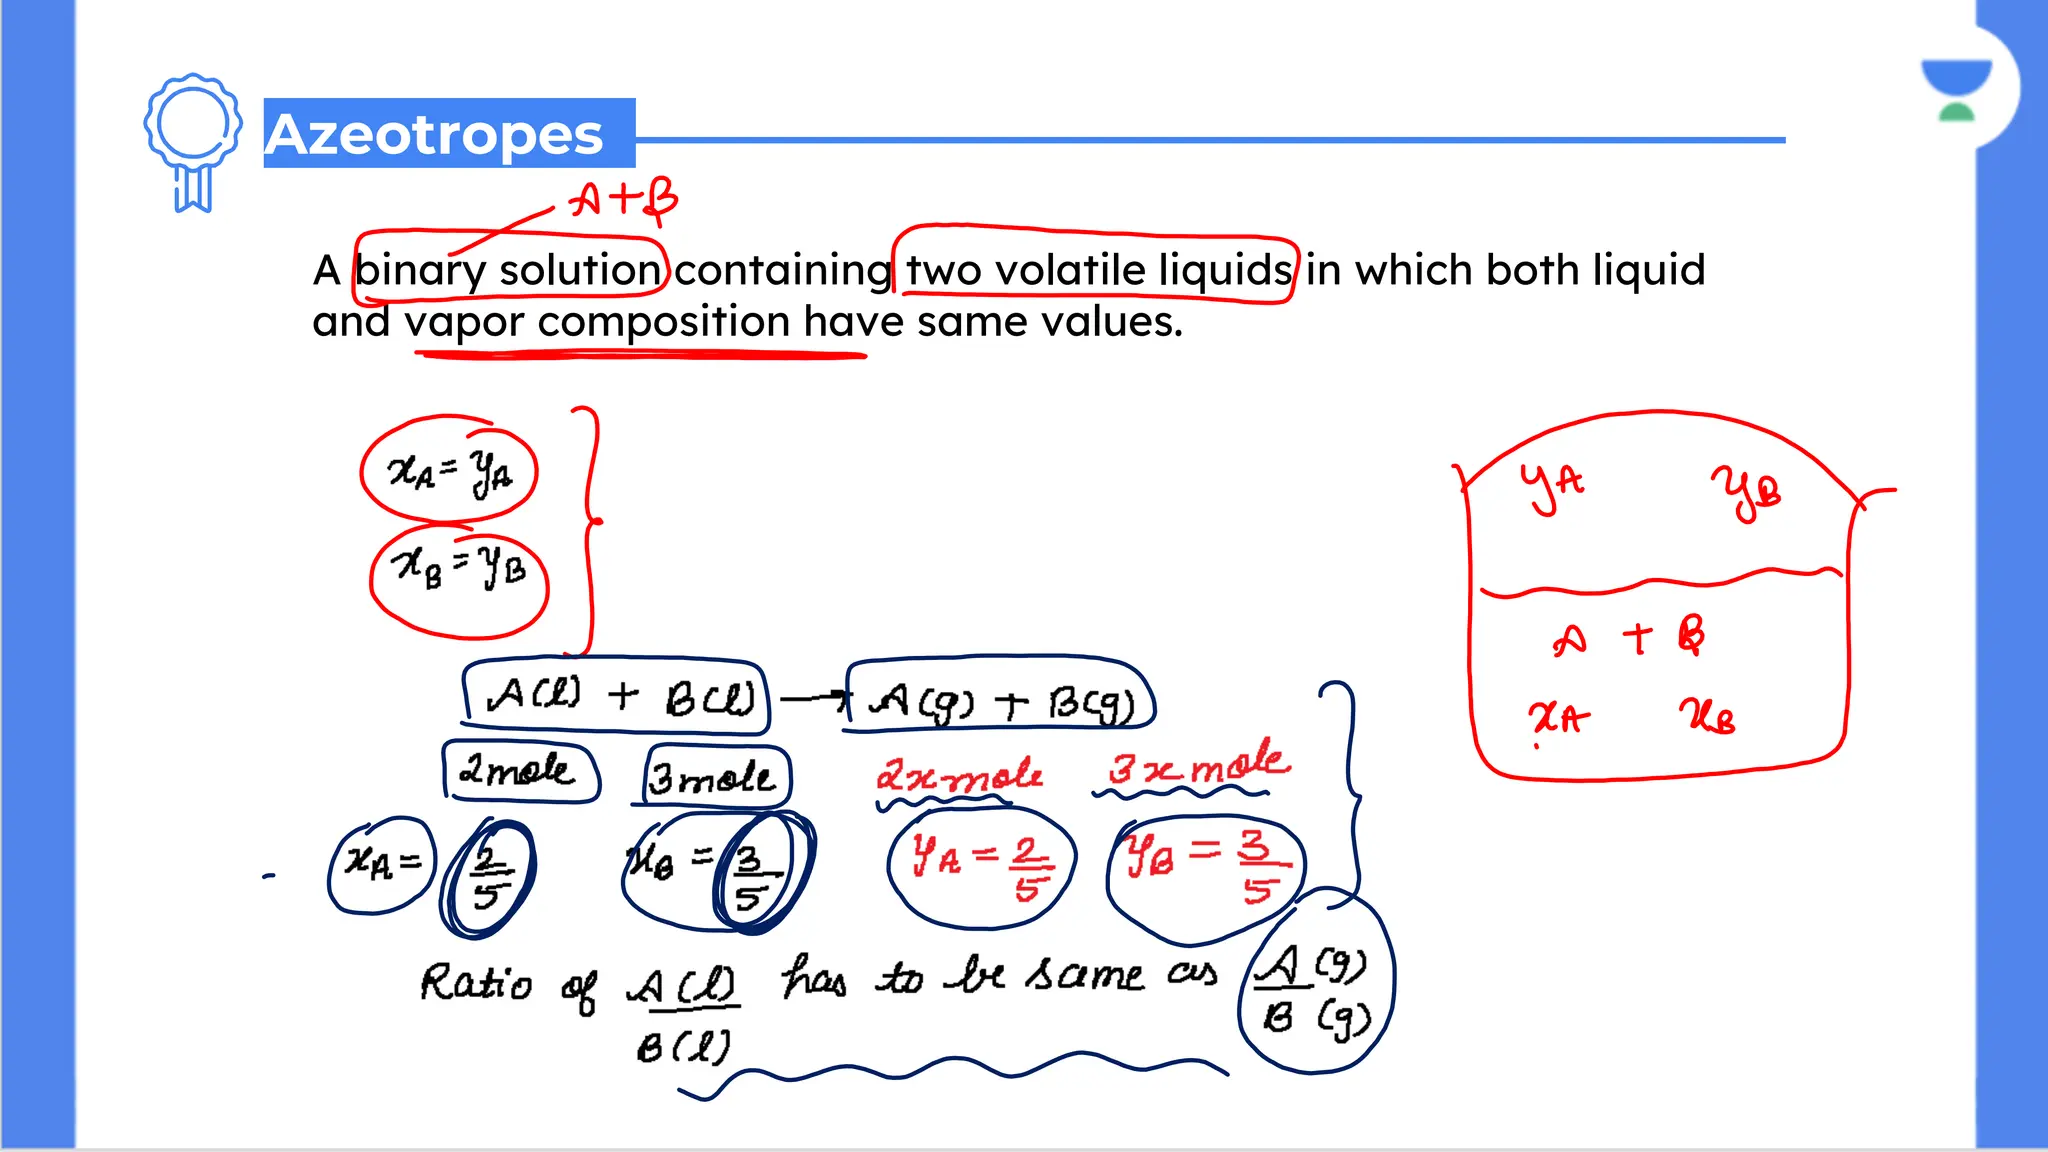 Azeotropes
A+B
A binary solution containing two volatile liquids in which both liquid
and vapor composition have same values.
xA = yA
xB = yB
yA yB
A + B
xA xB
A(l) + B(l) → A(g) + B(g)
2mole 3mole 2x mole 3x mole
xA = 2/5 xB = 3/5 yA = 2/5 yB = 3/5
Ratio of A(l)/B(l) has to be same as A(g)/B(g)